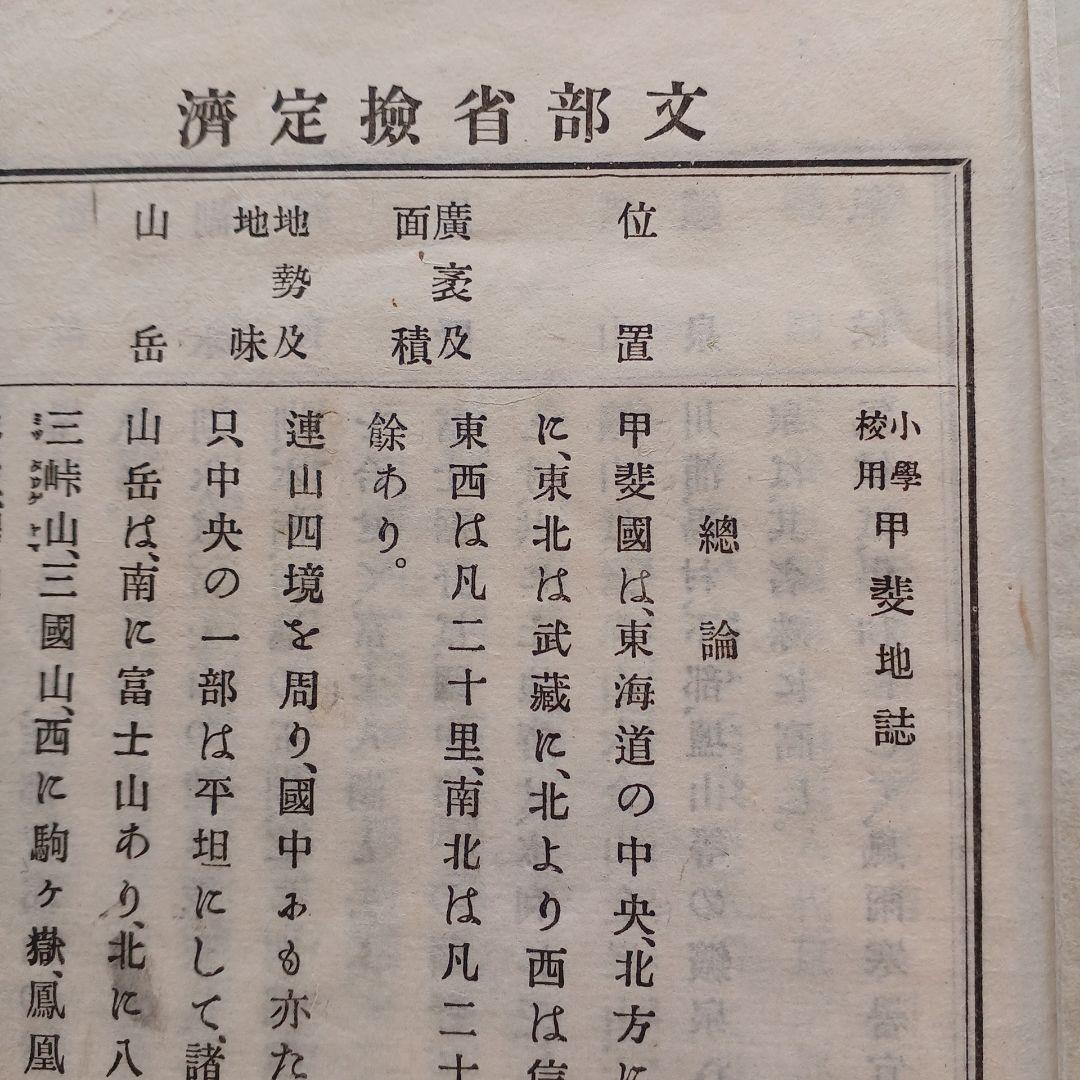 文部省撿定濟
小學校用甲斐地誌
總論
位置
甲斐國は、東海道の中央、北方に
に、東北は武藏に、北より西は信
廣袤及面積
東西は凡二十里、南北は凡二十
餘あり。
地勢及地味
連山四境を周り、國中にも亦た
只、中央の一部は平坦にして、諸
山岳
山岳は、南に富士山あり、北に八
三峠山、三國山、西に駒ヶ嶽、鳳凰